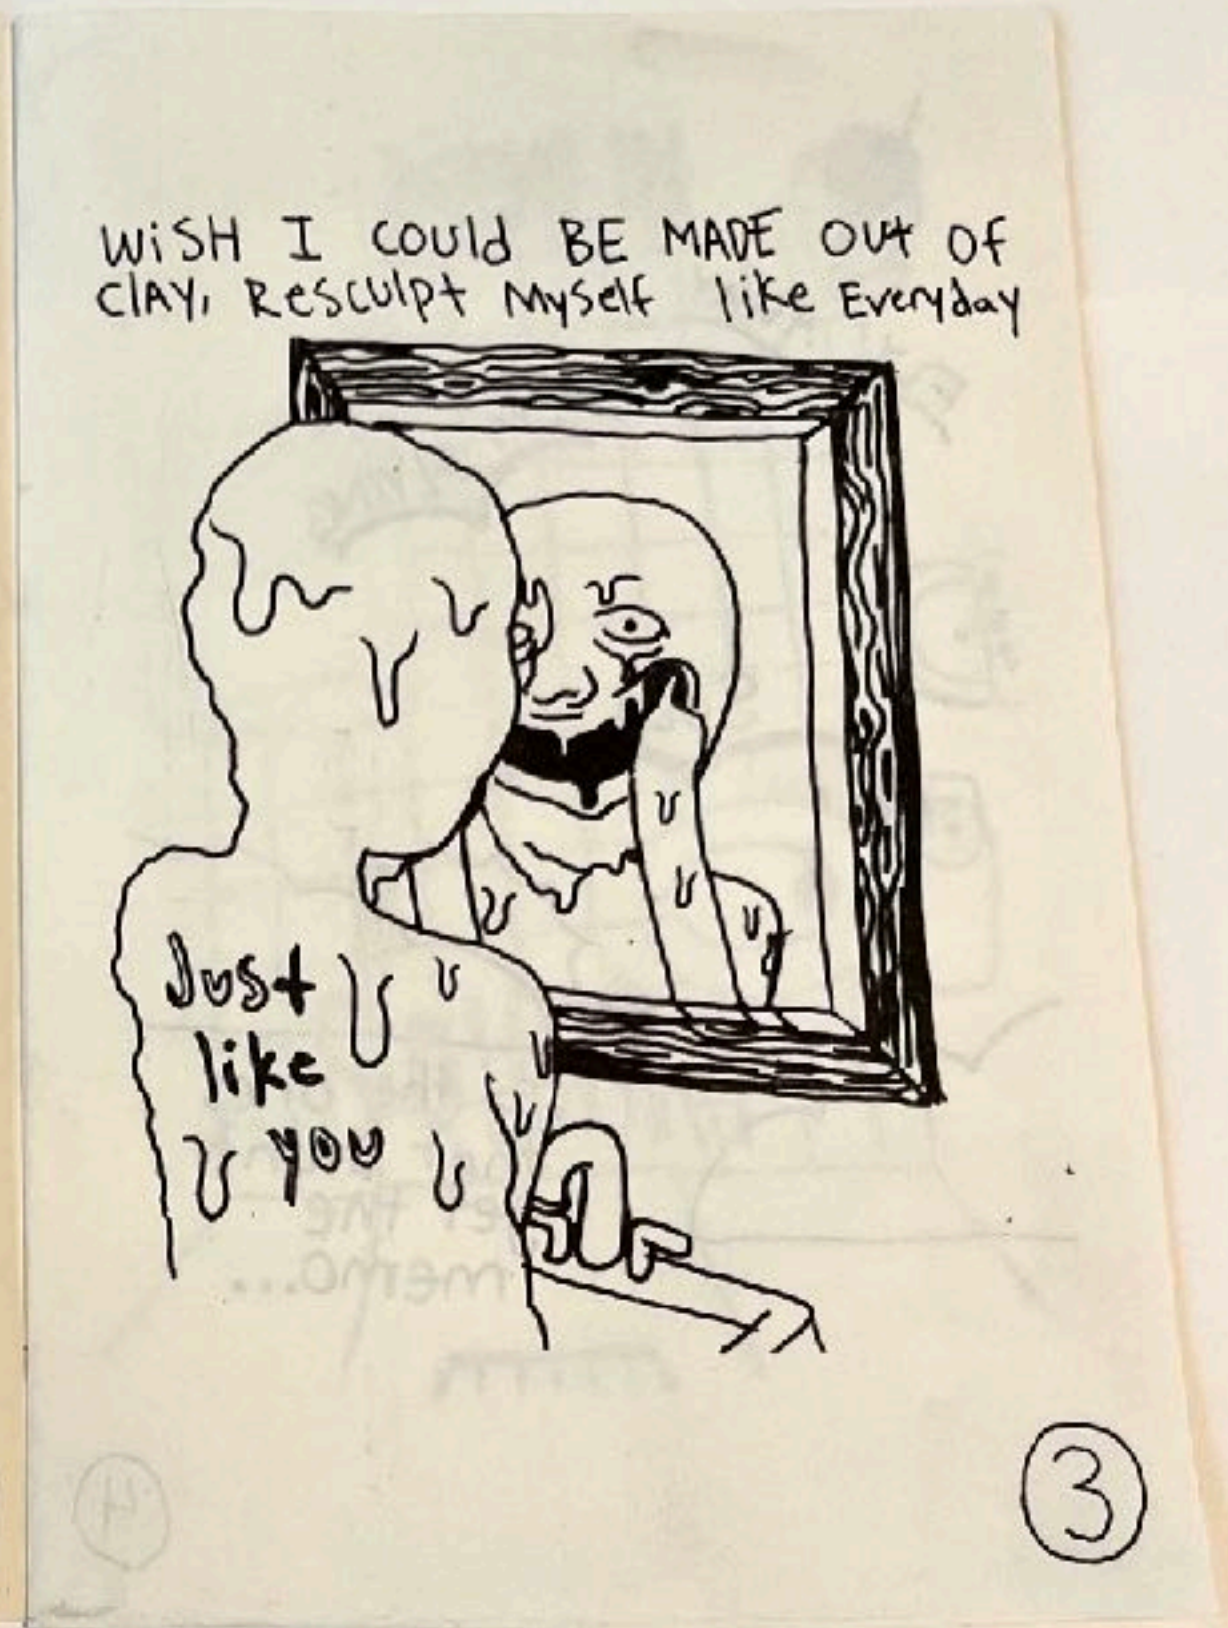 WiSH I COUld BE MADE OUt OF
ClAY, ReSCUlpt MySelf like Everyday
Just
like
you
3